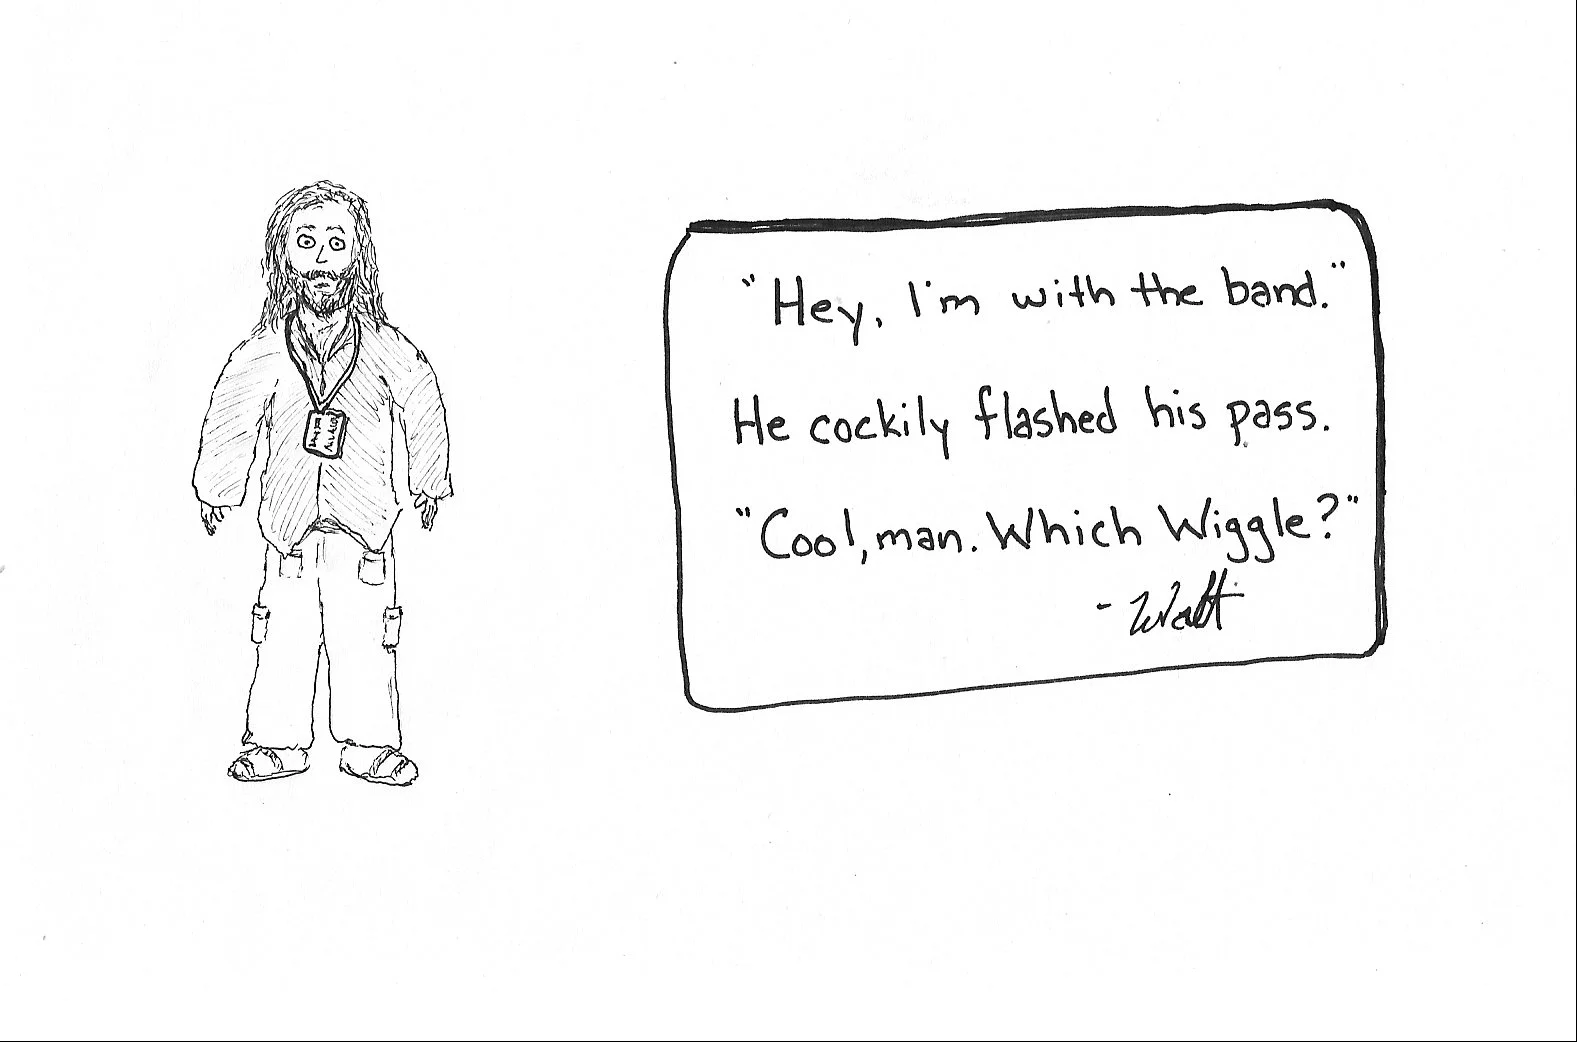 "Hey, I'm with the band."
He cockily flashed his pass.
"Cool, man. Which Wiggle?"
- Walt